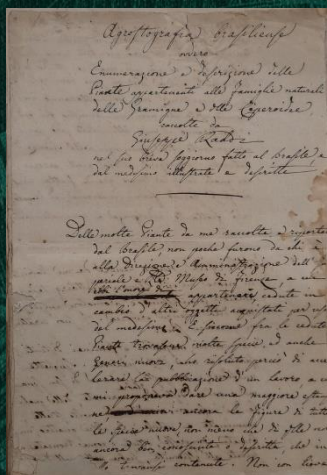 Agrostografia brasiliense
ovvero
Enumerazione e descrizione delle
Piante appartenenti alle famiglie naturali
delle Gramigne e delle Ciperoidee
raccolte da
Giuseppe Raddi
nel suo breve soggiorno fatto al brasile e
dal medesimo illustrate e descritte
Delle molte Piante da me raccolte e riportate
dal brasile non poche furono da chi è
alla Direzione ed Amministrazione dell'
e del Museo di firenze a cui
appartenere cedute in
cambio d'altri oggetti acquistati per uso
del medesimo. E siccome fra le cedute
Piante trovavansi molte specie ed anche
Generi nuovi, che risoluto perciò di
la pubblicazione d'un lavoro, a cui
mi proponevo dare una maggiore
ancora le figure di tutte
le specie nuove, non meno che di
ancora ben conosciute e descritte, che in
contenute. Non con